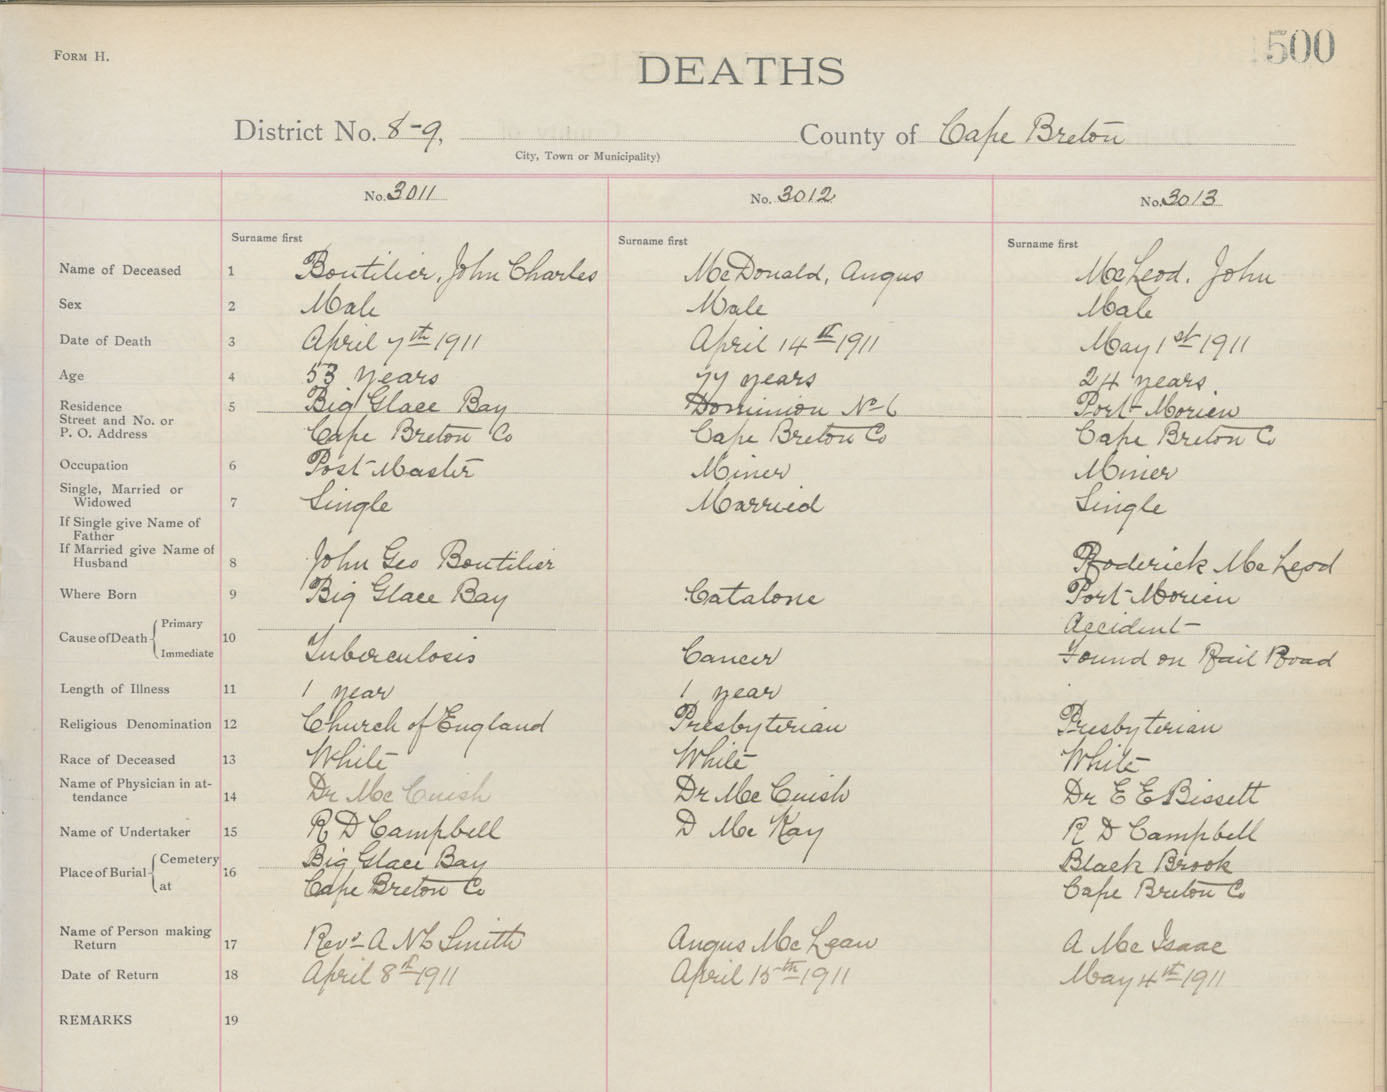 FORM H.
500
DEATHS
District No. 8-9, County of Cape Breton
City, Town or Municipality)
No. 3011 No. 3012 No. 3013
Surname first Surname first Surname first
Name of Deceased 1 Boutilier, John Charles McDonald, Angus McLeod, John
Sex 2 Male Male Male
Date of Death 3 April 7th 1911 April 14th 1911 May 1st 1911
Age 4 53 years 77 years 24 years
Residence 5 Big Glace Bay Dominion No 6 Port Morien
Street and No. or
P. O. Address Cape Breton Co Cape Breton Co Cape Breton Co
Occupation 6 Post Master Miner Miner
Single, Married or
Widowed 7 Single Married Single
If Single give Name of
Father
If Married give Name of
Husband 8 John Geo Boutilier Roderick McLeod
Where Born 9 Big Glace Bay Catalone Port Morien
Cause of Death Primary 10 Accident
Immediate Tuberculosis Cancer Found on Rail Road
Length of Illness 11 1 year 1 year
Religious Denomination 12 Church of England Presbyterian Presbyterian
Race of Deceased 13 White White White
Name of Physician in at-
tendance 14 Dr McCuish Dr McCuish Dr E E Bissett
Name of Undertaker 15 R D Campbell D McKay R D Campbell
Place of Burial Cemetery 16 Big Glace Bay Black Brook
at Cape Breton Co Cape Breton Co
Name of Person making
Return 17 Revd A Smith Angus McLean A McIsaac
Date of Return 18 April 8th 1911 April 15th 1911 May 4th 1911
REMARKS 19